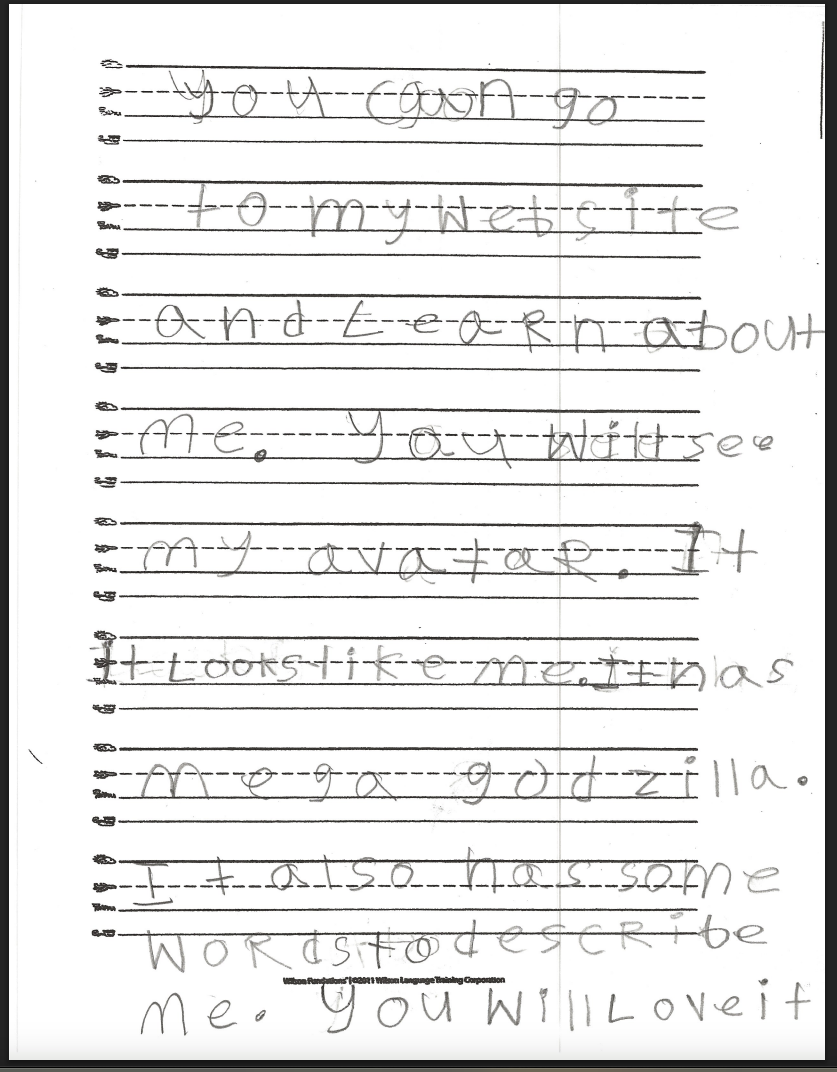 You can go
to my Website
and Learn about
me. You will see
my avataR. It
It Looks like me. It has
mega godzilla.
It also has some
WoRds to descRibe
me. You Will Love it
Wilson Fundations® | ©2011 Wilson Language Training Corporation